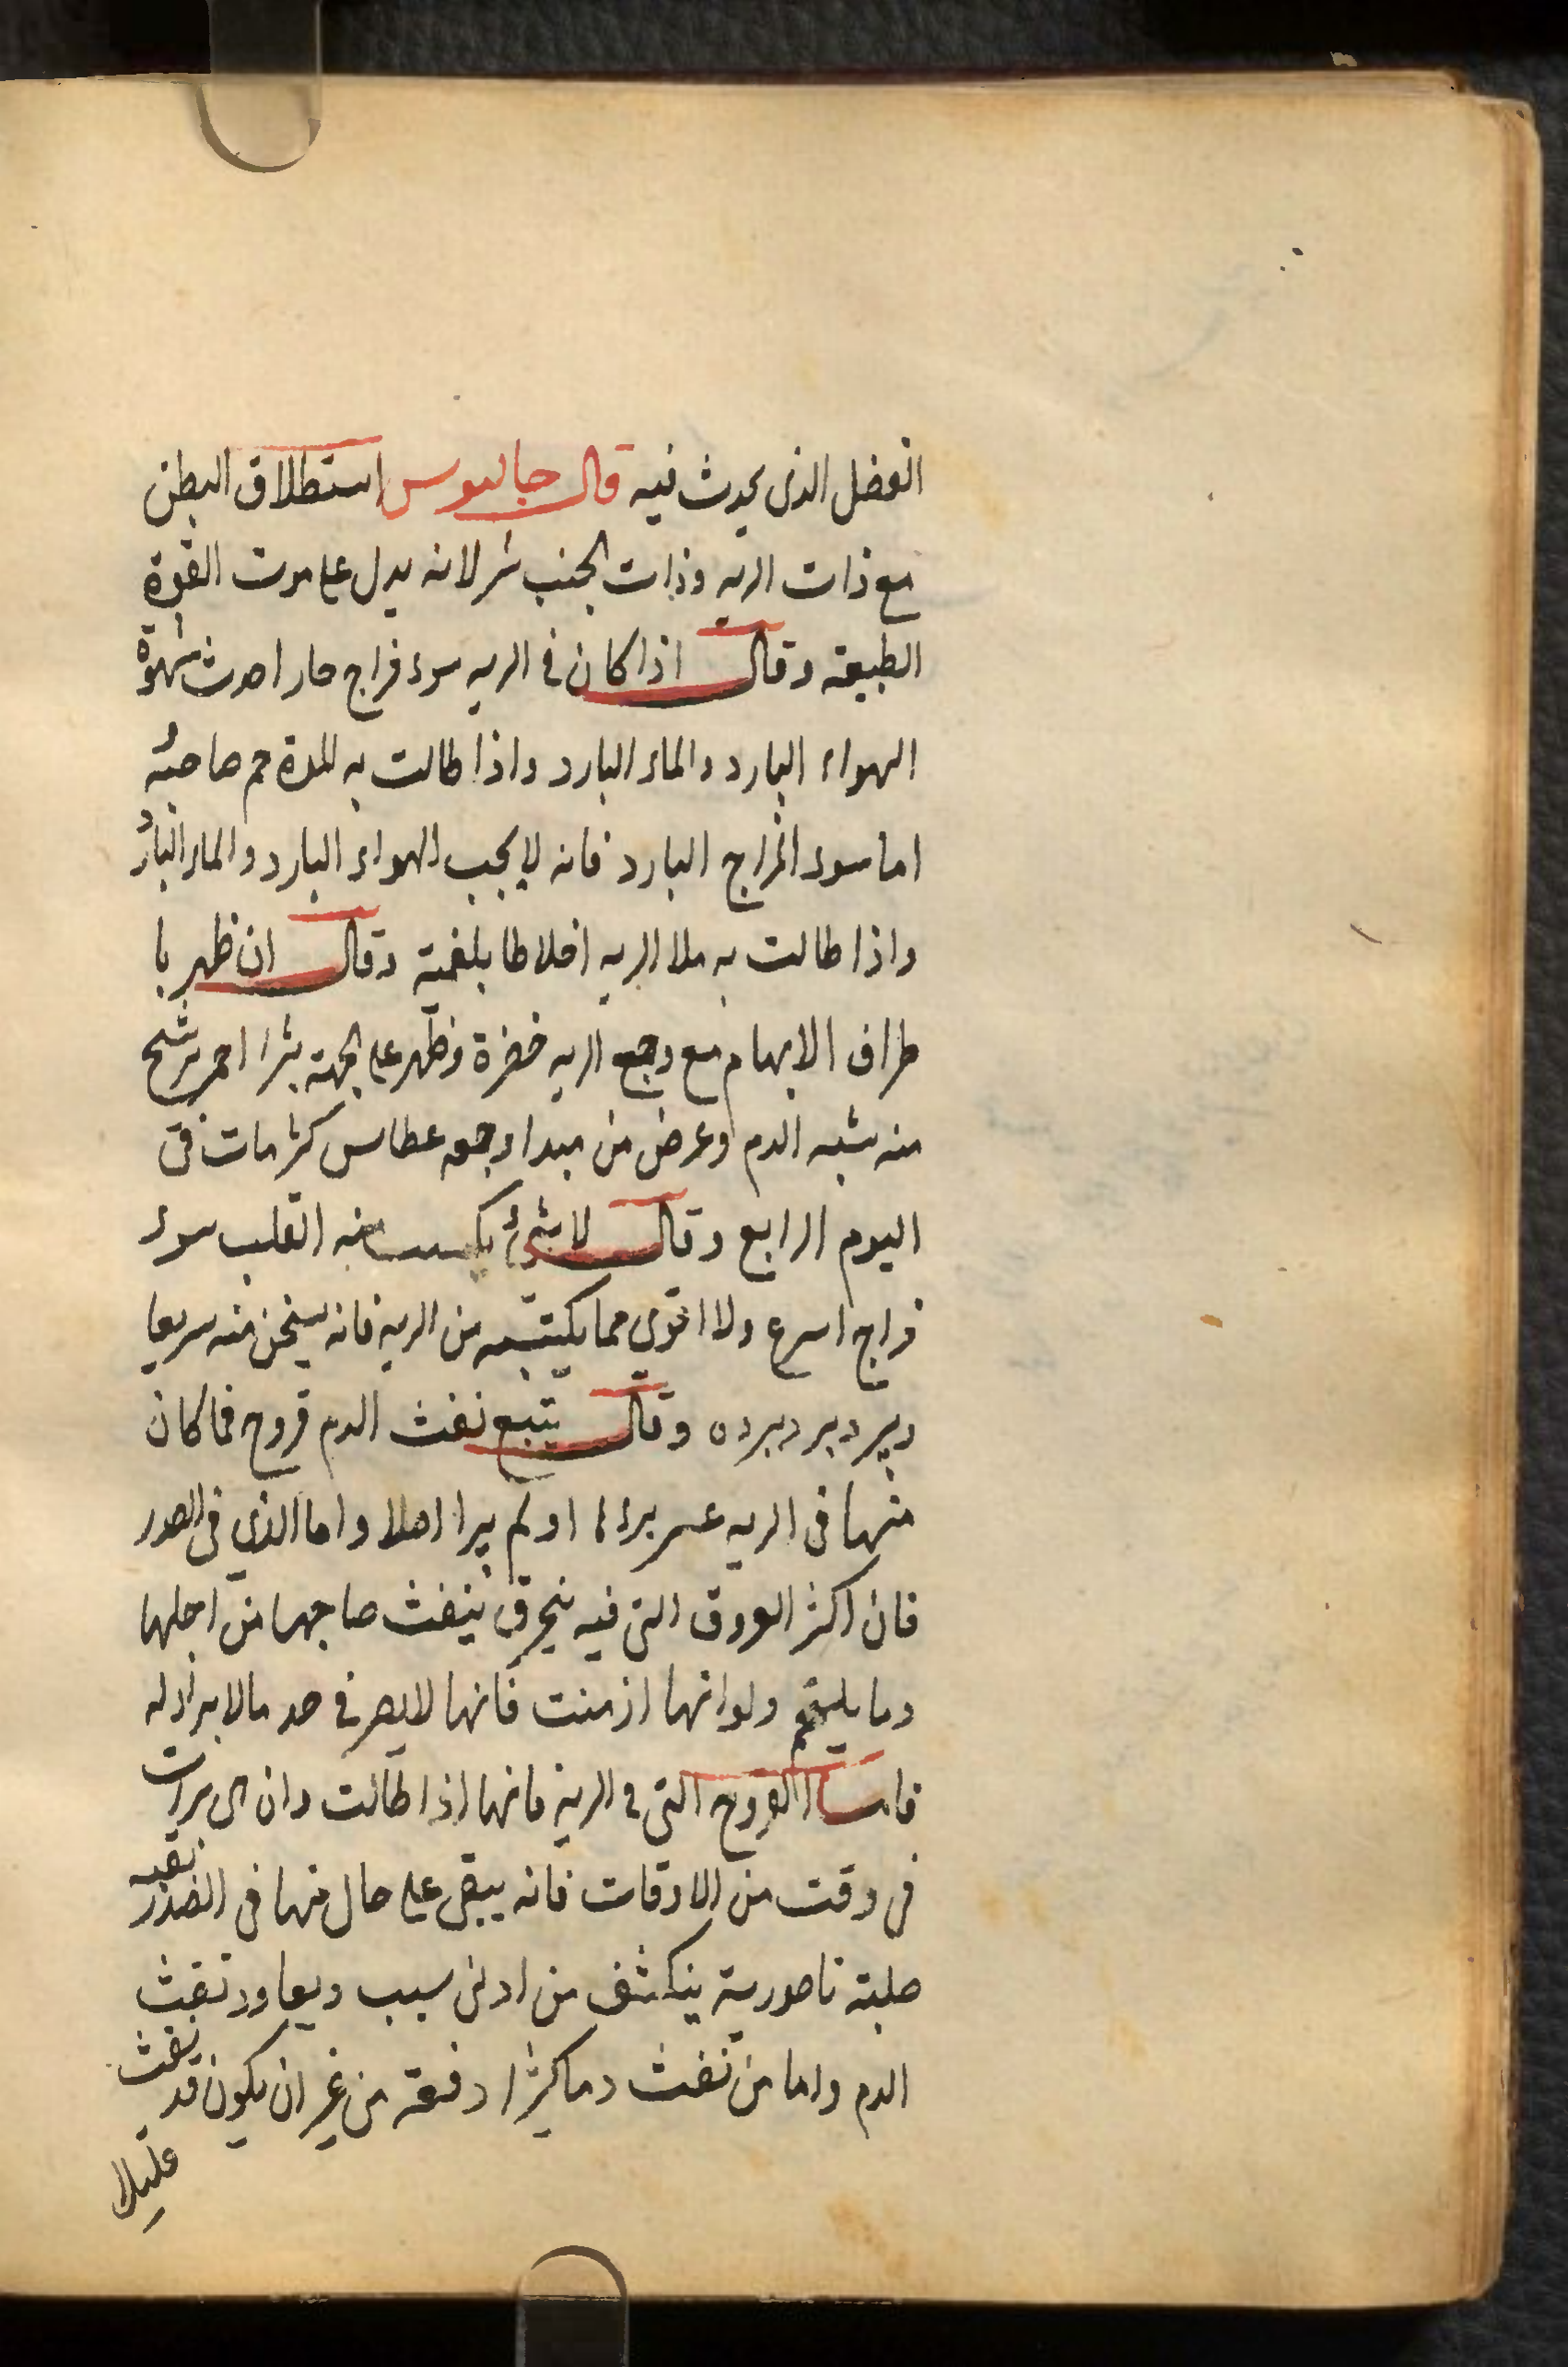 الفضل الذى يحدث فيه قال جالينوس استطلاق البطن
مع ذات الريه وذات الجنب شر لانه يدل على موت القوة
الطبيعة وقال اذا كان في الريه سوء مزاج حار احدث شهوة
الهواء البارد والماء البارد واذا طالت به المدة حم صاحبه
اما سوء المزاج البارد فانه لا يجب الهواء البارد والماء البارد
واذا طالت به ملا الريه اخلاطا بلغمية وقال ان ظهر با
طراف الابهام مع وجع الريه خضرة وظهر على الجبهة بثرا احمر يرشح
منه شبه الدم وعرض من مبدا وجعه عطاس كثر مات فى
اليوم الرابع وقال لا شئ يكسب منه القلب سوء
مزاج اسرع ولا اقوى مما يكتسبه من الريه فانه يسخن منه سريعا
ويبرد ببرده وقال يتبع نفث الدم قروح فما كان
منها فى الريه عسر برءها او لم يبرا اصلا واما الذي فى الصدر
فان اكثر العروق التى فيه ينخرق ينفث صاحبها من اجلها
دما يلتحم ولو انها ازمنت فانها لا يصر في حد ما لا برا له
فاما القروح التى في الرية فانها اذا طالت وان هى برات
فى وقت من الاوقات فانه يبقى على حال منها فى الصدر بقيه
صلبة ناصورية ينكشف من ادنى سبب ويعاود نفث
الدم واما من نفث دما كثيرا دفعة من غير ان يكون قد نفث
قليلا